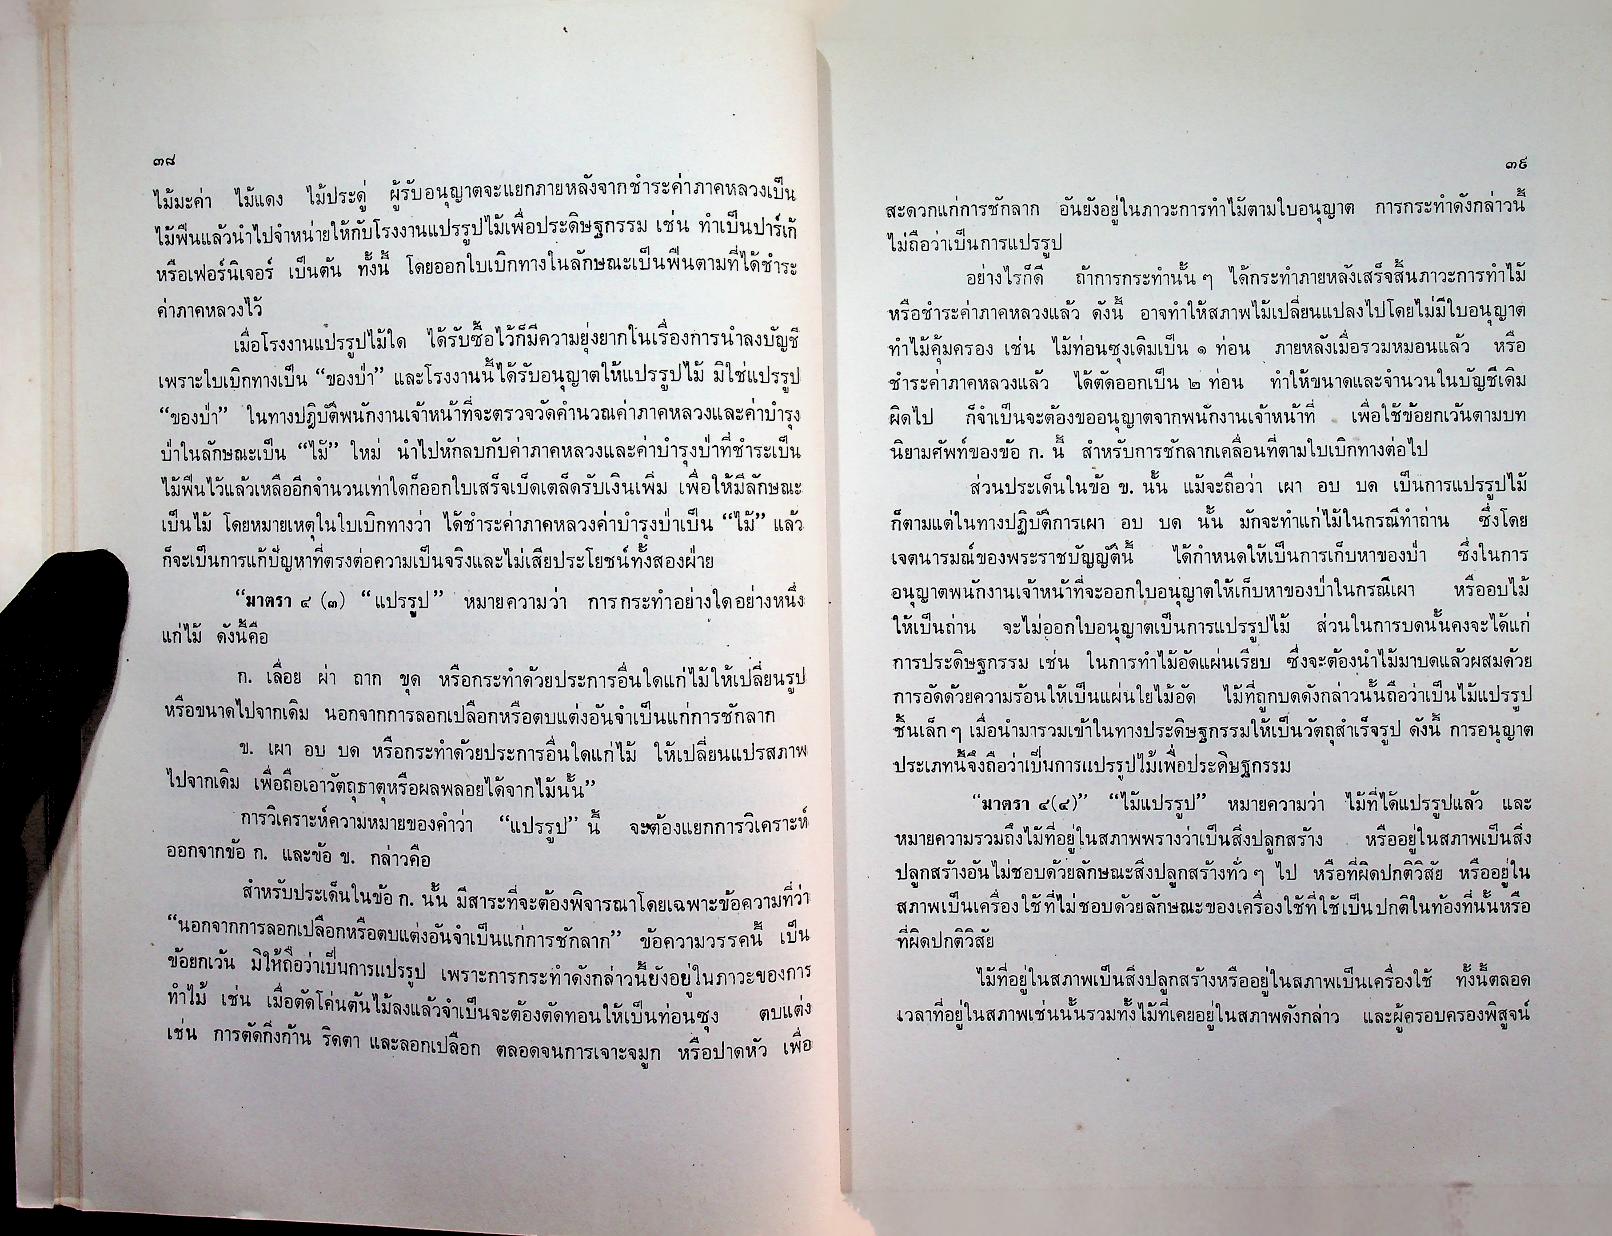 ๓๘
ไม้มะค่า ไม้แดง ไม้ประดู่ ผู้รับอนุญาตจะแยกภายหลังจากชำระค่าภาคหลวงเป็น
ไม้ฟืนแล้วนำไปจำหน่ายให้กับโรงงานแปรรูปไม้เพื่อประดิษฐกรรม เช่น ทำเป็นปาร์เก้
หรือเฟอร์นิเจอร์ เป็นต้น ทั้งนี้ โดยออกใบเบิกทางในลักษณะเป็นฟืนตามที่ได้ชำระ
ค่าภาคหลวงไว้
เมื่อโรงงานแปรรูปไม้ใด ได้รับซื้อไว้ก็มีความยุ่งยากในเรื่องการนำลงบัญชี
เพราะใบเบิกทางเป็น “ของป่า” และโรงงานนี้ได้รับอนุญาตให้แปรรูปไม้ มิใช่แปรรูป
“ของป่า” ในทางปฏิบัติพนักงานเจ้าหน้าที่จะตรวจวัดคำนวณค่าภาคหลวงและค่าบำรุง
ป่าในลักษณะเป็น “ไม้” ใหม่ นำไปหักลบกับค่าภาคหลวงและค่าบำรุงป่าที่ชำระเป็น
ไม้ฟืนไว้แล้วเหลืออีกจำนวนเท่าใดก็ออกใบเสร็จเบ็ดเตล็ดรับเงินเพิ่ม เพื่อให้มีลักษณะ
เป็นไม้ โดยหมายเหตุในใบเบิกทางว่า ได้ชำระค่าภาคหลวงค่าบำรุงป่าเป็น “ไม้” แล้ว
ก็จะเป็นการแก้ปัญหาที่ตรงต่อความเป็นจริงและไม่เสียประโยชน์ทั้งสองฝ่าย
“มาตรา ๔ (๓) “แปรรูป” หมายความว่า การกระทำอย่างใดอย่างหนึ่ง
แก่ไม้ ดังนี้คือ
ก. เลื่อย ผ่า ถาก ขุด หรือกระทำด้วยประการอื่นใดแก่ไม้ให้เปลี่ยนรูป
หรือขนาดไปจากเดิม นอกจากการลอกเปลือกหรือตบแต่งอันจำเป็นแก่การชักลาก
ข. เผา อบ บด หรือกระทำด้วยประการอื่นใดแก่ไม้ ให้เปลี่ยนแปรสภาพ
ไปจากเดิม เพื่อถือเอาวัตถุธาตุหรือผลพลอยได้จากไม้นั้น”
การวิเคราะห์ความหมายของคำว่า “แปรรูป” นี้ จะต้องแยกการวิเคราะห์
ออกจากข้อ ก. และข้อ ข. กล่าวคือ
สำหรับประเด็นในข้อ ก. นั้น มีสาระที่จะต้องพิจารณาโดยเฉพาะข้อความที่ว่า
“นอกจากการลอกเปลือกหรือตบแต่งอันจำเป็นแก่การชักลาก” ข้อความวรรคนี้ เป็น
ข้อยกเว้น มิให้ถือว่าเป็นการแปรรูป เพราะการกระทำดังกล่าวนี้ยังอยู่ในภาวะของการ
ทำไม้ เช่น เมื่อตัดโค่นต้นไม้ลงแล้วจำเป็นจะต้องตัดทอนให้เป็นท่อนซุง ตบแต่ง
เช่น การตัดกิ่งก้าน ริดตา และลอกเปลือก ตลอดจนการเจาะจมูก หรือปาดหัว เพื่อ
๓๙
สะดวกแก่การชักลาก อันยังอยู่ในภาวะการทำไม้ตามใบอนุญาต การกระทำดังกล่าวนี้
ไม่ถือว่าเป็นการแปรรูป
อย่างไรก็ดี ถ้าการกระทำนั้น ๆ ได้กระทำภายหลังเสร็จสิ้นภาวะการทำไม้
หรือชำระค่าภาคหลวงแล้ว ดังนี้ อาจทำให้สภาพไม้เปลี่ยนแปลงไปโดยไม่มีใบอนุญาต
ทำไม้คุ้มครอง เช่น ไม้ท่อนซุงเดิมเป็น ๑ ท่อน ภายหลังเมื่อรวมหมอนแล้ว หรือ
ชำระค่าภาคหลวงแล้ว ได้ตัดออกเป็น ๒ ท่อน ทำให้ขนาดและจำนวนในบัญชีเดิม
ผิดไป ก็จำเป็นจะต้องขออนุญาตจากพนักงานเจ้าหน้าที่ เพื่อใช้ข้อยกเว้นตามบท
นิยามศัพท์ของข้อ ก. นี้ สำหรับการชักลากเคลื่อนที่ตามใบเบิกทางต่อไป
ส่วนประเด็นในข้อ ข. นั้น แม้จะถือว่า เผา อบ บด เป็นการแปรรูปไม้
ก็ตามแต่ในทางปฏิบัติการเผา อบ บด นั้น มักจะทำแก่ไม้ในกรณีทำถ่าน ซึ่งโดย
เจตนารมณ์ของพระราชบัญญัตินี้ ได้กำหนดให้เป็นการเก็บหาของป่า ซึ่งในการ
อนุญาตพนักงานเจ้าหน้าที่จะออกใบอนุญาตให้เก็บหาของป่าในกรณีเผา หรืออบไม้
ให้เป็นถ่าน จะไม่ออกใบอนุญาตเป็นการแปรรูปไม้ ส่วนในการบดนั้นคงจะได้แก่
การประดิษฐกรรม เช่น ในการทำไม้อัดแผ่นเรียบ ซึ่งจะต้องนำไม้มาบดแล้วผสมด้วย
การอัดด้วยความร้อนให้เป็นแผ่นใยไม้อัด ไม้ที่ถูกบดดังกล่าวนั้นถือว่าเป็นไม้แปรรูป
ชิ้นเล็ก ๆ เมื่อนำมารวมเข้าในทางประดิษฐกรรมให้เป็นวัตถุสำเร็จรูป ดังนี้ การอนุญาต
ประเภทนี้จึงถือว่าเป็นการแปรรูปไม้เพื่อประดิษฐกรรม
“มาตรา ๔(๔)” “ไม้แปรรูป” หมายความว่า ไม้ที่ได้แปรรูปแล้ว และ
หมายความรวมถึงไม้ที่อยู่ในสภาพพรางว่าเป็นสิ่งปลูกสร้าง หรืออยู่ในสภาพเป็นสิ่ง
ปลูกสร้างอันไม่ชอบด้วยลักษณะสิ่งปลูกสร้างทั่ว ๆ ไป หรือที่ผิดปกติวิสัย หรืออยู่ใน
สภาพเป็นเครื่องใช้ที่ไม่ชอบด้วยลักษณะของเครื่องใช้ที่ใช้เป็นปกติในท้องที่นั้นหรือ
ที่ผิดปกติวิสัย
ไม้ที่อยู่ในสภาพเป็นสิ่งปลูกสร้างหรืออยู่ในสภาพเป็นเครื่องใช้ ทั้งนี้ตลอด
เวลาที่อยู่ในสภาพเช่นนั้นรวมทั้งไม้ที่เคยอยู่ในสภาพดังกล่าว และผู้ครอบครองพิสูจน์